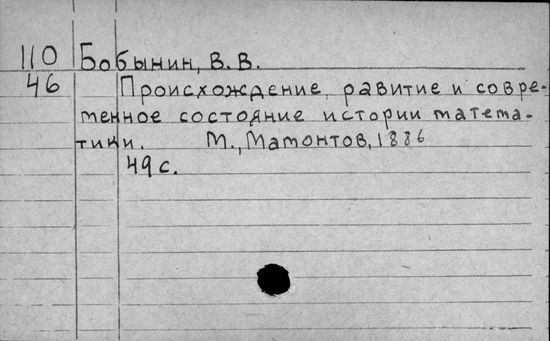 110 Бобынин, В. В.
46 Происхождение, равитие и совре-
менное состояние истории матема-
тики. М., Мамонтов, 1886
49 с.